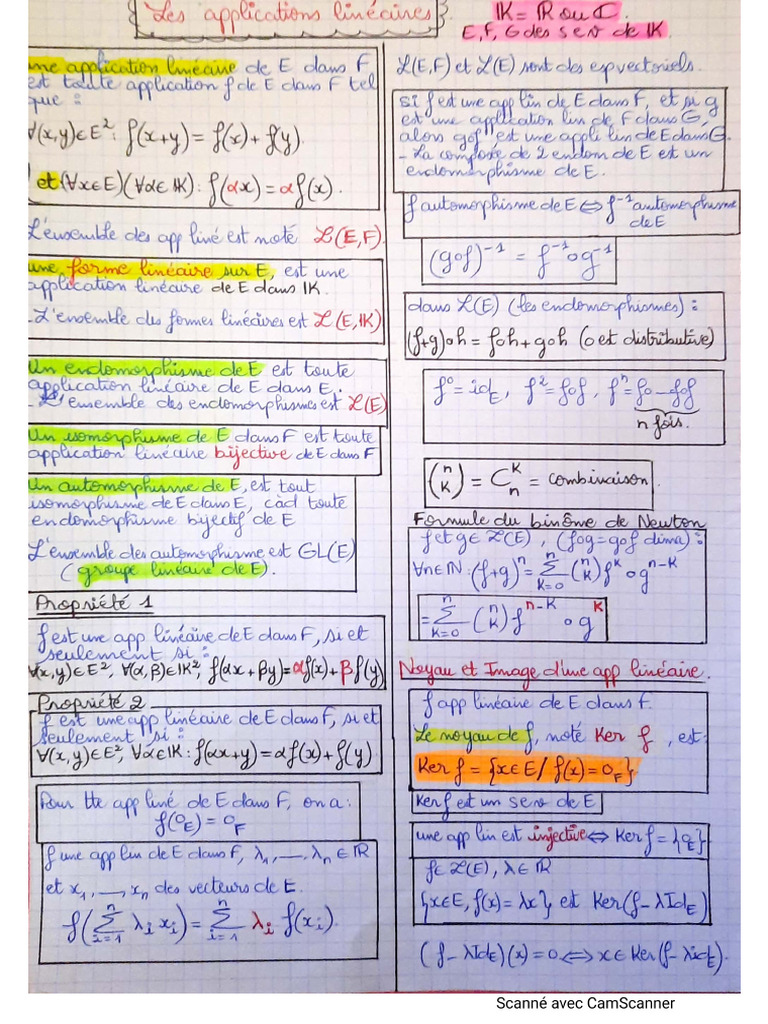 Les applications linéaires.
IK = IR ou ℂ.
E, F, G des sev de IK.
une application linéaire de E dans F
est toute application f de E dans F tel
que :
∀(x,y)∈E²: f(x+y) = f(x)+f(y).
et (∀x∈E)(∀α∈IK): f(αx) = αf(x).
L'ensemble des app liné est noté ℒ(E,F).
une forme linéaire sur E, est une
application linéaire de E dans IK.
- L'ensemble des formes linéaires est ℒ(E,IK)
Un endomorphisme de E est toute
application linéaire de E dans E.
- L'ensemble des endomorphismes est ℒ(E)
Un isomorphisme de E dans F est toute
application linéaire bijective de E dans F
Un automorphisme de E, est tout
isomorphisme de E dans E, càd toute
endomorphisme bijectif de E
L'ensemble des automorphisme est GL(E)
(groupe linéaire de E).
Propriété 1
f est une app linéaire de E dans F, si et
seulement si :
∀(x,y)∈E², ∀(α,β)∈IK², f(αx+βy)=αf(x)+βf(y)
Propriété 2
f est une app linéaire de E dans F, si et
seulement si :
∀(x,y)∈E², ∀α∈IK: f(αx+y)=αf(x)+f(y)
Pour tte app liné de E dans F, on a:
f(0_E) = 0_F
f une app lin de E dans F, λ₁, ..., λₙ ∈ IR
et x₁, ..., xₙ des vecteurs de E.
f(∑_{i=1}^{n} λᵢ xᵢ) = ∑_{i=1}^{n} λᵢ f(xᵢ).
ℒ(E,F) et ℒ(E) sont des esp vectoriels.
si f est une app lin de E dans F, et si g
est une application lin de F dans G,
alors gof est une appli lin de E dans G.
- La composé de 2 endom de E est un
endomorphisme de E.
f automorphisme de E ⇔ f⁻¹ automorphisme
de E
(gof)⁻¹ = f⁻¹og⁻¹
dans ℒ(E) (les endomorphismes) :
(f+g)oh = foh + goh (o est distributive)
f⁰ = id_E, f² = fof, fⁿ = fo...fof
n fois.
(n k) = C_n^k = combinaison.
Formule du binôme de Newton
f et g ∈ ℒ(E), (fog = gof dima) :
∀n∈IN: (f+g)ⁿ = ∑_{k=0}^{n} (n k) f^k o g^{n-k}
= ∑_{k=0}^{n} (n k) f^{n-k} o g^k
Noyau et Image d'une app linéaire.
f app linéaire de E dans F.
Le noyau de f, noté Ker f, est:
Ker f = {x∈E / f(x) = 0_F}
Ker f est un sev de E
une app lin est injective ⇔ Ker f = {0_E}
f∈ℒ(E), λ∈IR
{x∈E, f(x)=λx} est Ker(f-λId_E)
(f-λId_E)(x)=0 ⇔ x∈Ker(f-λid_E).
Scanné avec CamScanner